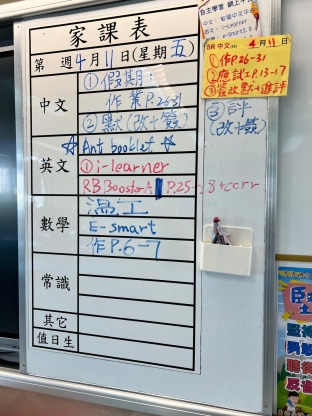 家課表
第 週 4 月 11 日(星期五)
中文
①假期:
作業P.26-31
②默(改+簽)
③評
(改+簽)
英文
☆ Ant booklet ☆
①i-learner
RB Booster A P.25-28+corr
數學
溫工
E-smart
作P.6-7
常識
其它
值日生
自主學習 網上平台
i-Learner
5R 中文 4月11日
①作P.26-31
②應試工P.13-17
③簽改默+進評